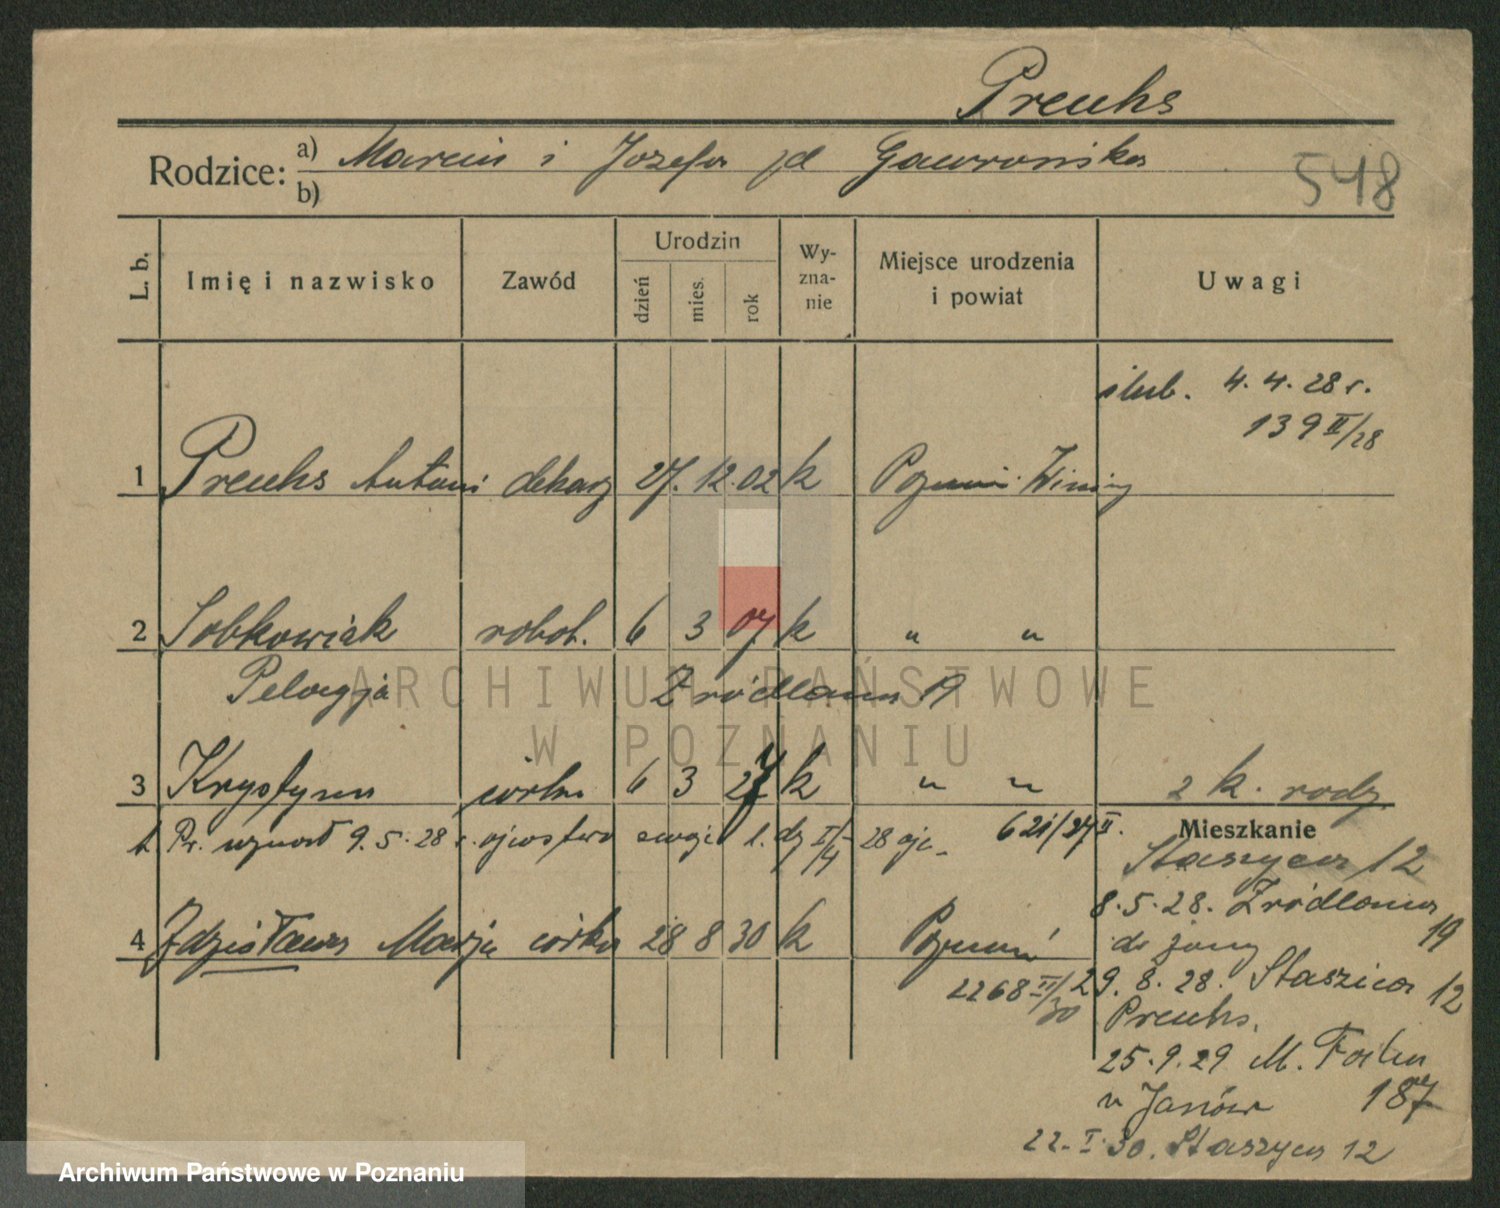 Preuhs
Rodzice: a) Marcin i Józefa zd Gawrońska
b)
548
L. b. Imię i nazwisko Zawód Urodzin dzień mies. rok Wy-zna-nie Miejsce urodzenia i powiat Uwagi
ślub. 4. 4. 28 r.
139 II/28
1 Preuhs Antoni dekarz 27. 12. 02 k Poznań Winiary
2 Sobkowiak robot. 6 3 07 k " "
Pelagja Źródlana 19
ARCHIWUM PAŃSTWOWE
W POZNANIU
3 Krystyna córka 6 3 27 k " " 2 k. rodz.
Pr. uznał 9. 5. 28 r. ojcostwo 621/27 II.
Mieszkanie
Staszyca 12
8. 5. 28. Źródlana 19
do żony
4 Zdzisława Marja córka 28 8 30 k Poznań
2268 II/30
29. 8. 28. Staszica 12
Preuhs.
25. 9. 29 M. Focha 187
u Janów
22. I. 30. Staszyca 12
Archiwum Państwowe w Poznaniu